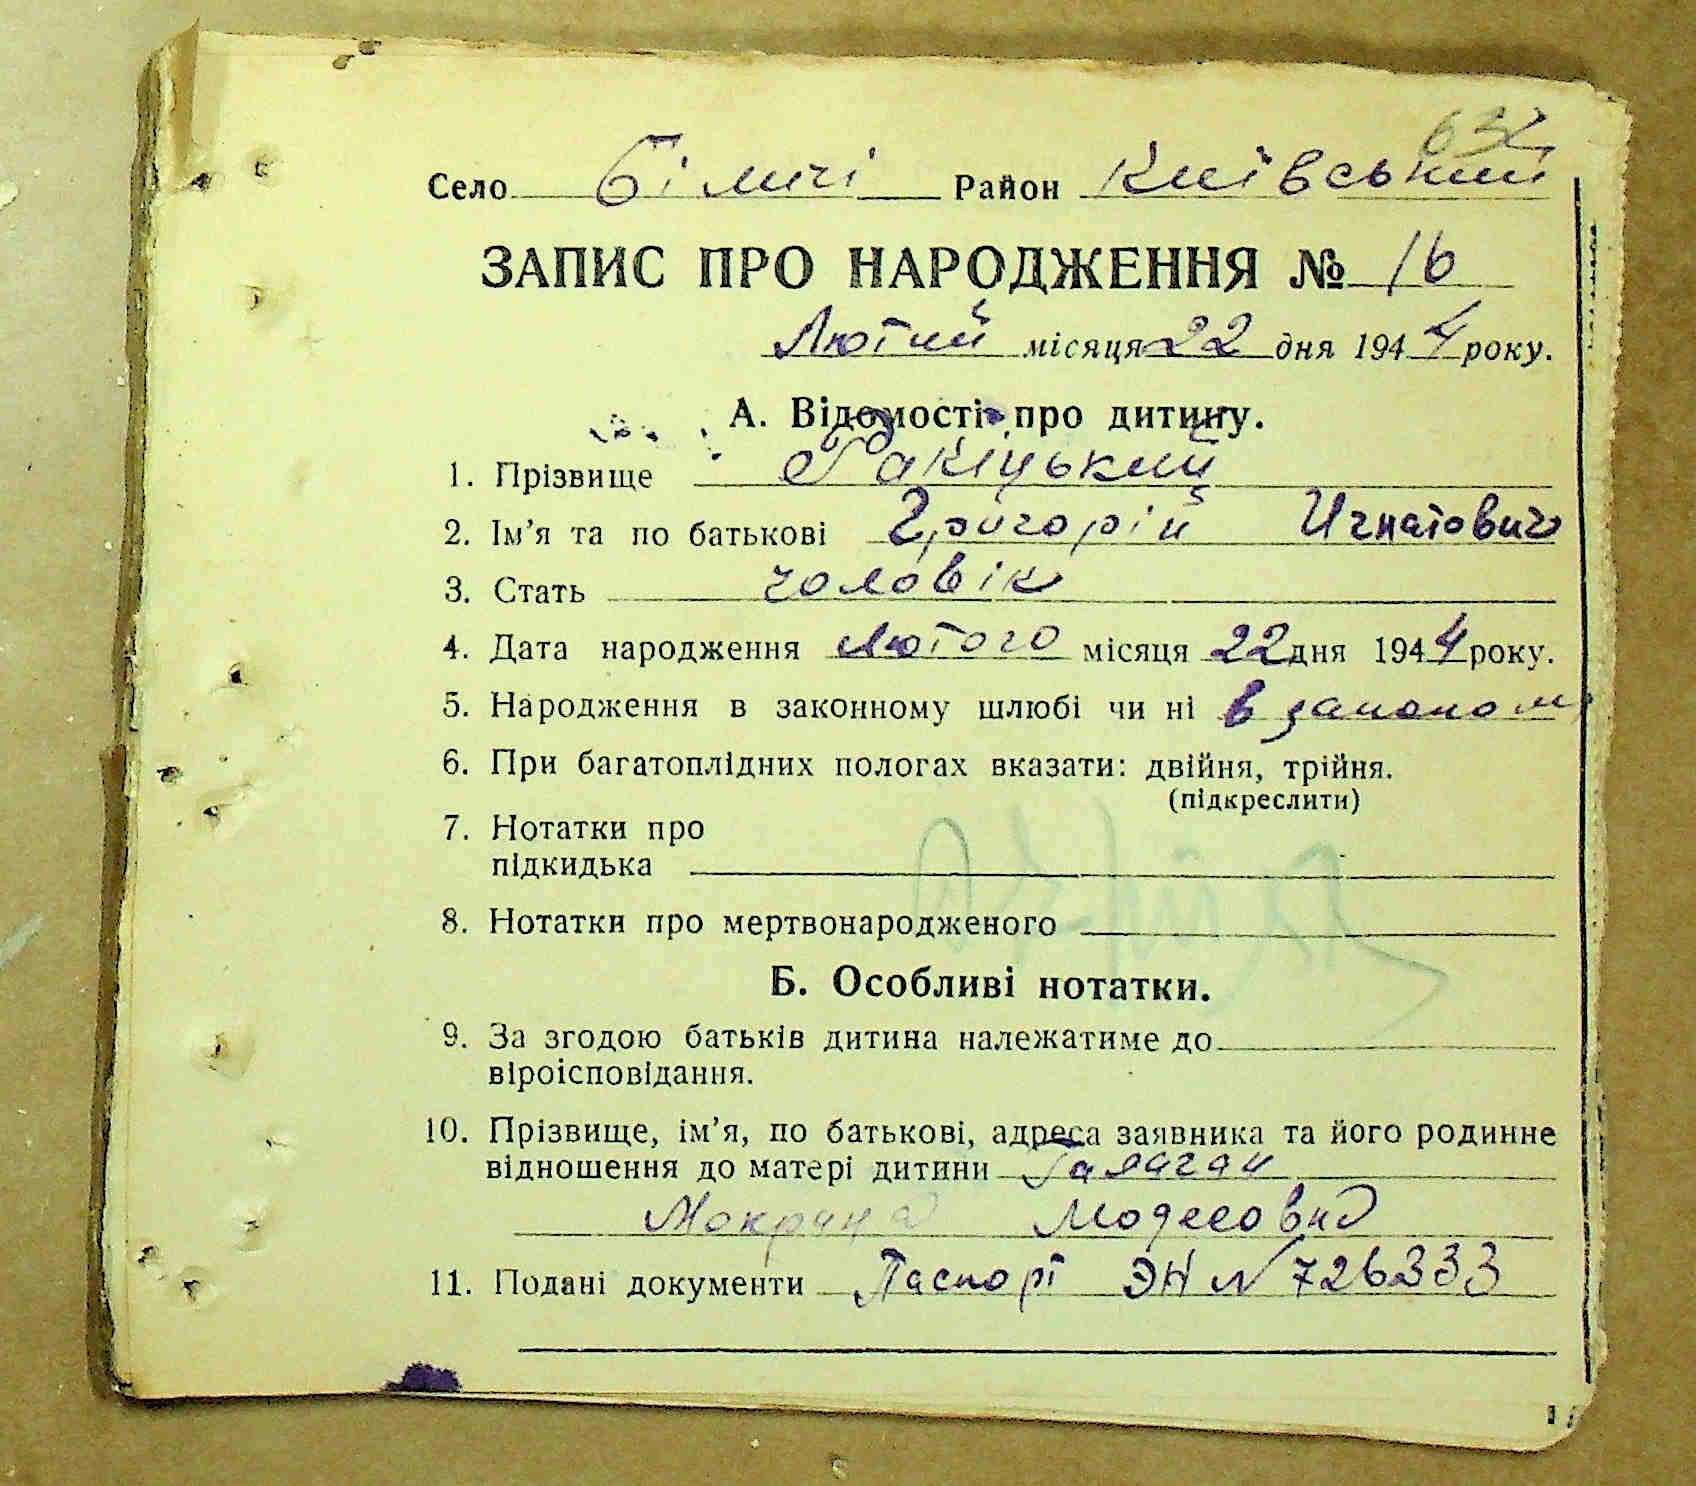 632
Село Біличі Район Київський
ЗАПИС ПРО НАРОДЖЕННЯ № 16
Лютий місяця 22 дня 1944 року.
А. Відомості про дитину.
1. Прізвище Ракіцький
2. Ім'я та по батькові Григорій Игнатович
3. Стать чоловік
4. Дата народження лютого місяця 22 дня 1944 року.
5. Народження в законному шлюбі чи ні в законом
6. При багатоплідних пологах вказати: двійня, трійня.
(підкреслити)
7. Нотатки про
підкидька
8. Нотатки про мертвонародженого
Б. Особливі нотатки.
9. За згодою батьків дитина належатиме до
віроісповідання.
10. Прізвище, ім'я, по батькові, адреса заявника та його родинне
відношення до матері дитини Галаган
Мокрина
11. Подані документи Паспорт ЭН № 726333